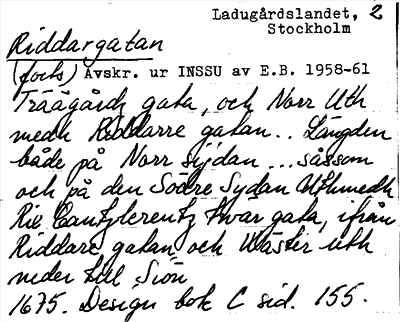 Ladugårdslandet, 2
Stockholm
Riddargatan
(forts) Avskr. ur INSSU av E.B. 1958-61
Träägårdz gata, och Norr Uth
medh Riddarre gatan.. Längden
både på Norr sijdan ... såssom
och på den Södre Sydan Uthmedh
Rix Cantzlerentz twär gata, ifrån
Riddare gatan och Wäster uth
neder till Siön
1675. Design bok C sid. 155.